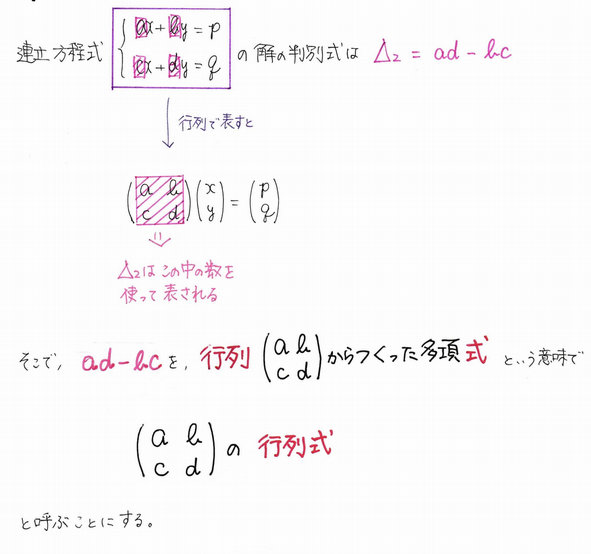 連立方程式 { ax + by = p
cx + dy = q の解の判別式は Δ₂ = ad - bc
行列で表すと
(a b
c d)(x
y) = (p
q)
Δ₂はこの中の数を
使って表される
そこで, ad - bc を, 行列 (a b
c d) からつくった多項式 という意味で
(a b
c d) の 行列式
と呼ぶことにする。